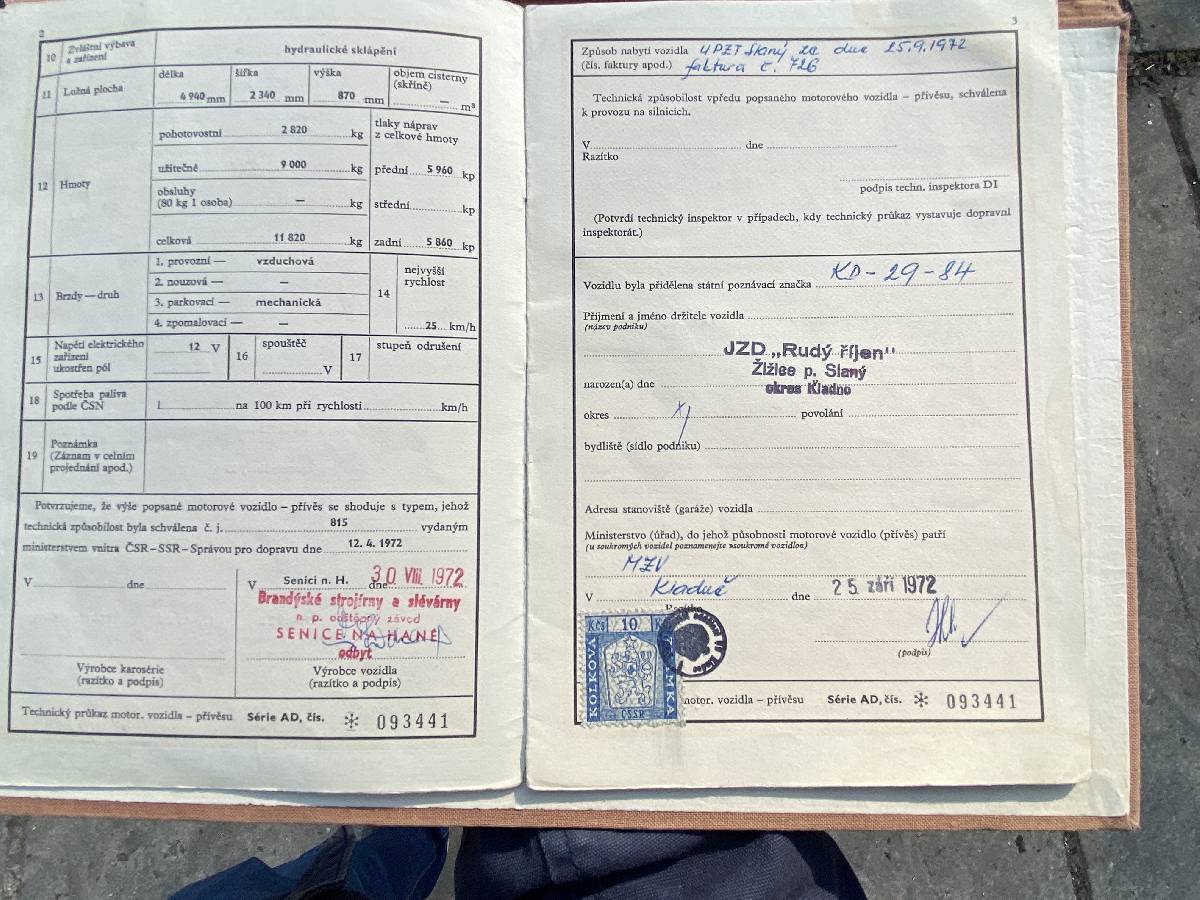 2
10 Zvláštní výbava a zařízení
hydraulické sklápění
11 Ložná plocha
délka 4 940 mm
šířka 2 340 mm
výška 870 mm
objem cisterny (skříně) — m³
12 Hmoty
pohotovostní 2 820 kg
užitečné 9 000 kg
obsluhy
(80 kg 1 osoba) — kg
celková 11 820 kg
tlaky náprav
z celkové hmoty
přední 5 960 kp
střední kp
zadní 5 860 kp
13 Brzdy—druh
1. provozní — vzduchová
2. nouzová — —
3. parkovací — mechanická
4. zpomalovací — —
14 nejvyšší
rychlost
25 km/h
15 Napětí elektrického
zařízení
ukostřen pól
12 V
16 spouštěč
V
17 stupeň odrušení
18 Spotřeba paliva
podle ČSN
l na 100 km při rychlosti km/h
19 Poznámka
(Záznam v celním
projednání apod.)
Potvrzujeme, že výše popsané motorové vozidlo – přívěs se shoduje s typem, jehož
technická způsobilost byla schválena č. j. 815 vydaným
ministerstvem vnitra ČSR–SSR–Správou pro dopravu dne 12. 4. 1972
V dne
V Senici n. H. dne 30 VIII. 1972
Brandýské strojírny a slévárny
n. p. odštěpný závod
SENICE NA HANÉ
odbyt
Výrobce karosérie
(razítko a podpis)
Výrobce vozidla
(razítko a podpis)
Technický průkaz motor. vozidla – přívěsu Série AD, čís. 093441
3
Způsob nabytí vozidla UPZT Slaný ze dne 25.9.1972
(čís. faktury apod.) faktura č. 726
Technická způsobilost vpředu popsaného motorového vozidla – přívěsu, schválena
k provozu na silnicích.
V dne
Razítko
podpis techn. inspektora DI
(Potvrdí technický inspektor v případech, kdy technický průkaz vystavuje dopravní
inspektorát.)
Vozidlu byla přidělena státní poznávací značka KD-29-84
Příjmení a jméno držitele vozidla
(název podniku)
JZD „Rudý říjen"
Žižice p. Slaný
okres Kladno
narozen(a) dne
okres povolání
bydliště (sídlo podniku)
Adresa stanoviště (garáže) vozidla
Ministerstvo (úřad), do jehož působnosti motorové vozidlo (přívěs) patří
(u soukromých vozidel poznamenejte »soukromé vozidlo«)
MZV
V Kladně dne 25 září 1972
Razítko
(podpis)
Kčs 10 K
KOLKOVÁ
ZNÁMKA
ČSSR
motor. vozidla – přívěsu Série AD, čís. 093441